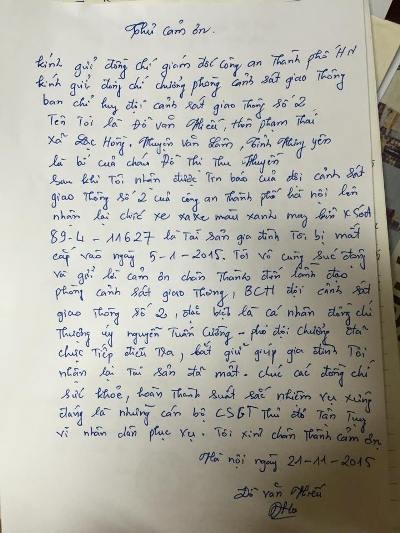 Thư cảm ơn.
kính gửi đồng chí giám đốc công an Thành phố HN
kính gửi đồng chí chưởng phòng cảnh sát giao Thông
ban chỉ huy đội cảnh sát giao thông số 2
Tên Tôi là Đỗ văn Thiều, thôn phạm Thái
xã Lạc Hồng. Huyện văn Lâm, Tỉnh Hưng yên
là bố của cháu Đỗ Thị Thu Huyền
sau khi Tôi nhận được Tin báo của đội cảnh sát
giao thông số 2 của công an thành phố hà nội lên
nhận lại chiếc xe màu xanh mang biển
89-4-11627 là Tài sản gia đình Tôi bị mất
cắp vào ngày 5-1-2015. Tôi vô cùng xúc động
và gửi lời cảm ơn chân Thành đến lãnh đạo
phòng cảnh sát giao thông, BCH đội cảnh sát
giao thông số 2, đặc biệt là cá nhân đồng chí
Thượng úy nguyễn Tuấn Cường - phó đội chưởng đã
chực Tiếp điều tra, bắt giữ giúp gia đình Tôi
nhận lại Tài sản đã mất. chúc các đồng chí
sức khỏe, hoàn thành suất sắc nhiệm vụ xứng
đáng là những cán bộ CSGT Thủ đô Tận Tụy
vì nhân dân phục vụ. Tôi xin chân thành cảm ơn
Hà nội ngày 21-11-2015
Đỗ văn Thiều